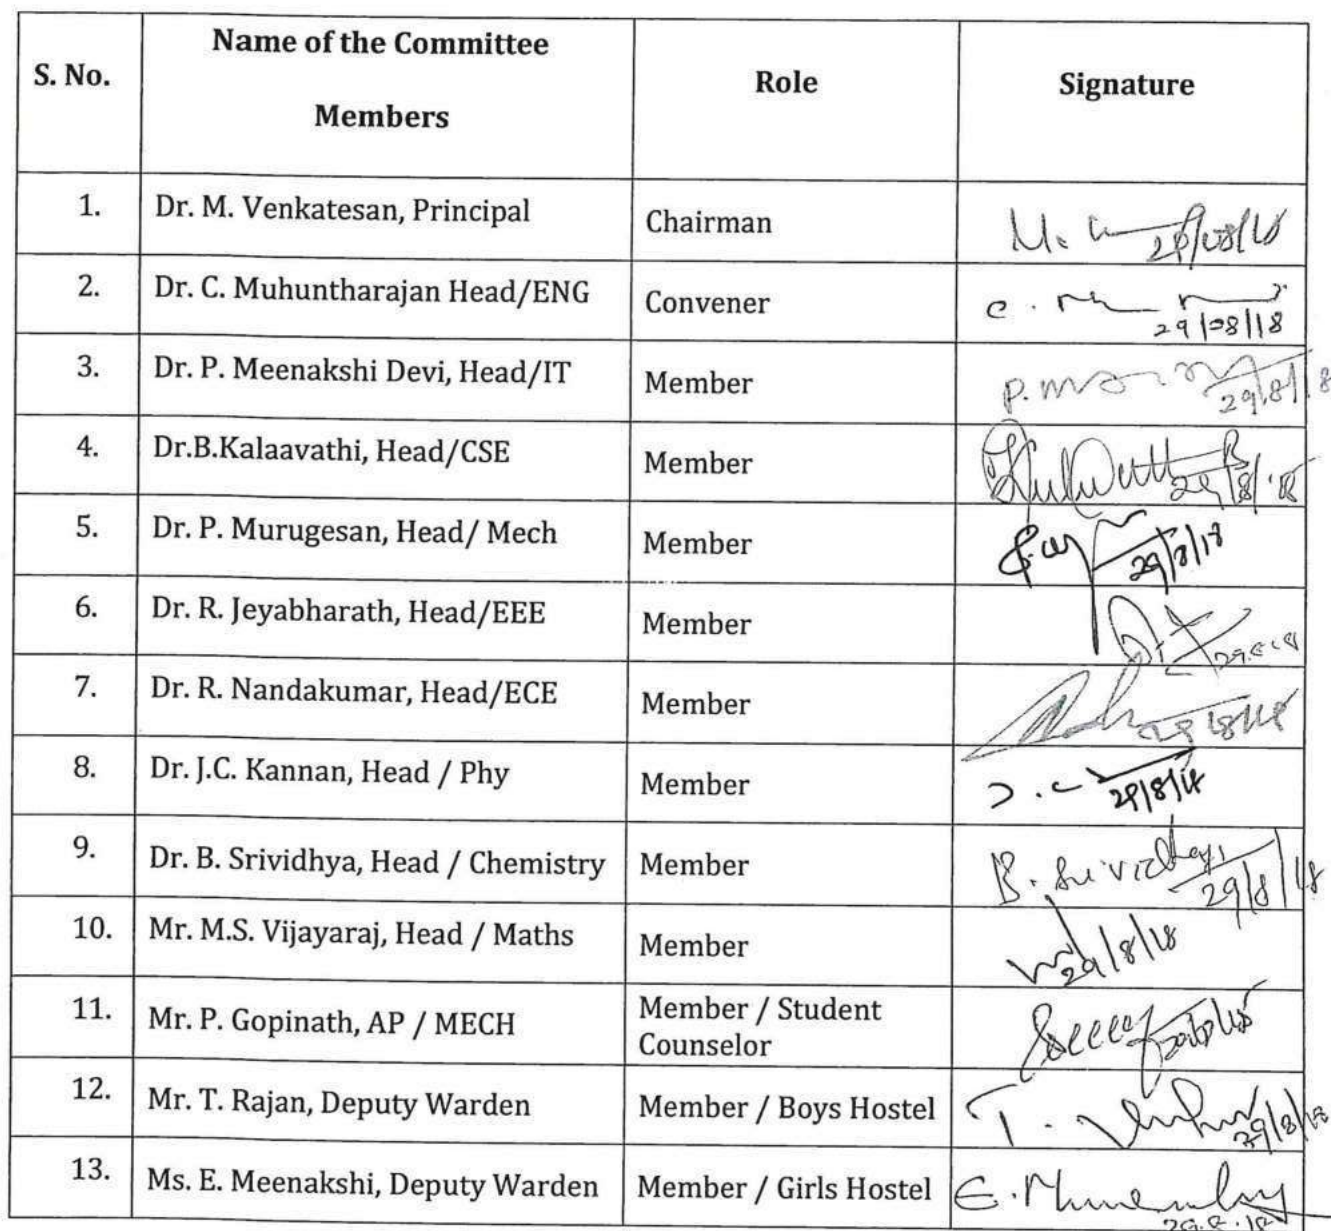 S. No.
Name of the Committee
Members
Role
Signature
1.
Dr. M. Venkatesan, Principal
Chairman
2.
Dr. C. Muhuntharajan Head/ENG
Convener
29/08/18
3.
Dr. P. Meenakshi Devi, Head/IT
Member
29/8/18
4.
Dr.B.Kalaavathi, Head/CSE
Member
29/8/18
5.
Dr. P. Murugesan, Head/ Mech
Member
29/8/18
6.
Dr. R. Jeyabharath, Head/EEE
Member
7.
Dr. R. Nandakumar, Head/ECE
Member
29/8/18
8.
Dr. J.C. Kannan, Head / Phy
Member
29/8/18
9.
Dr. B. Srividhya, Head / Chemistry
Member
B. Srividhya
29/8/18
10.
Mr. M.S. Vijayaraj, Head / Maths
Member
29/8/18
11.
Mr. P. Gopinath, AP / MECH
Member / Student
Counselor
12.
Mr. T. Rajan, Deputy Warden
Member / Boys Hostel
29/8/18
13.
Ms. E. Meenakshi, Deputy Warden
Member / Girls Hostel
29.8.18